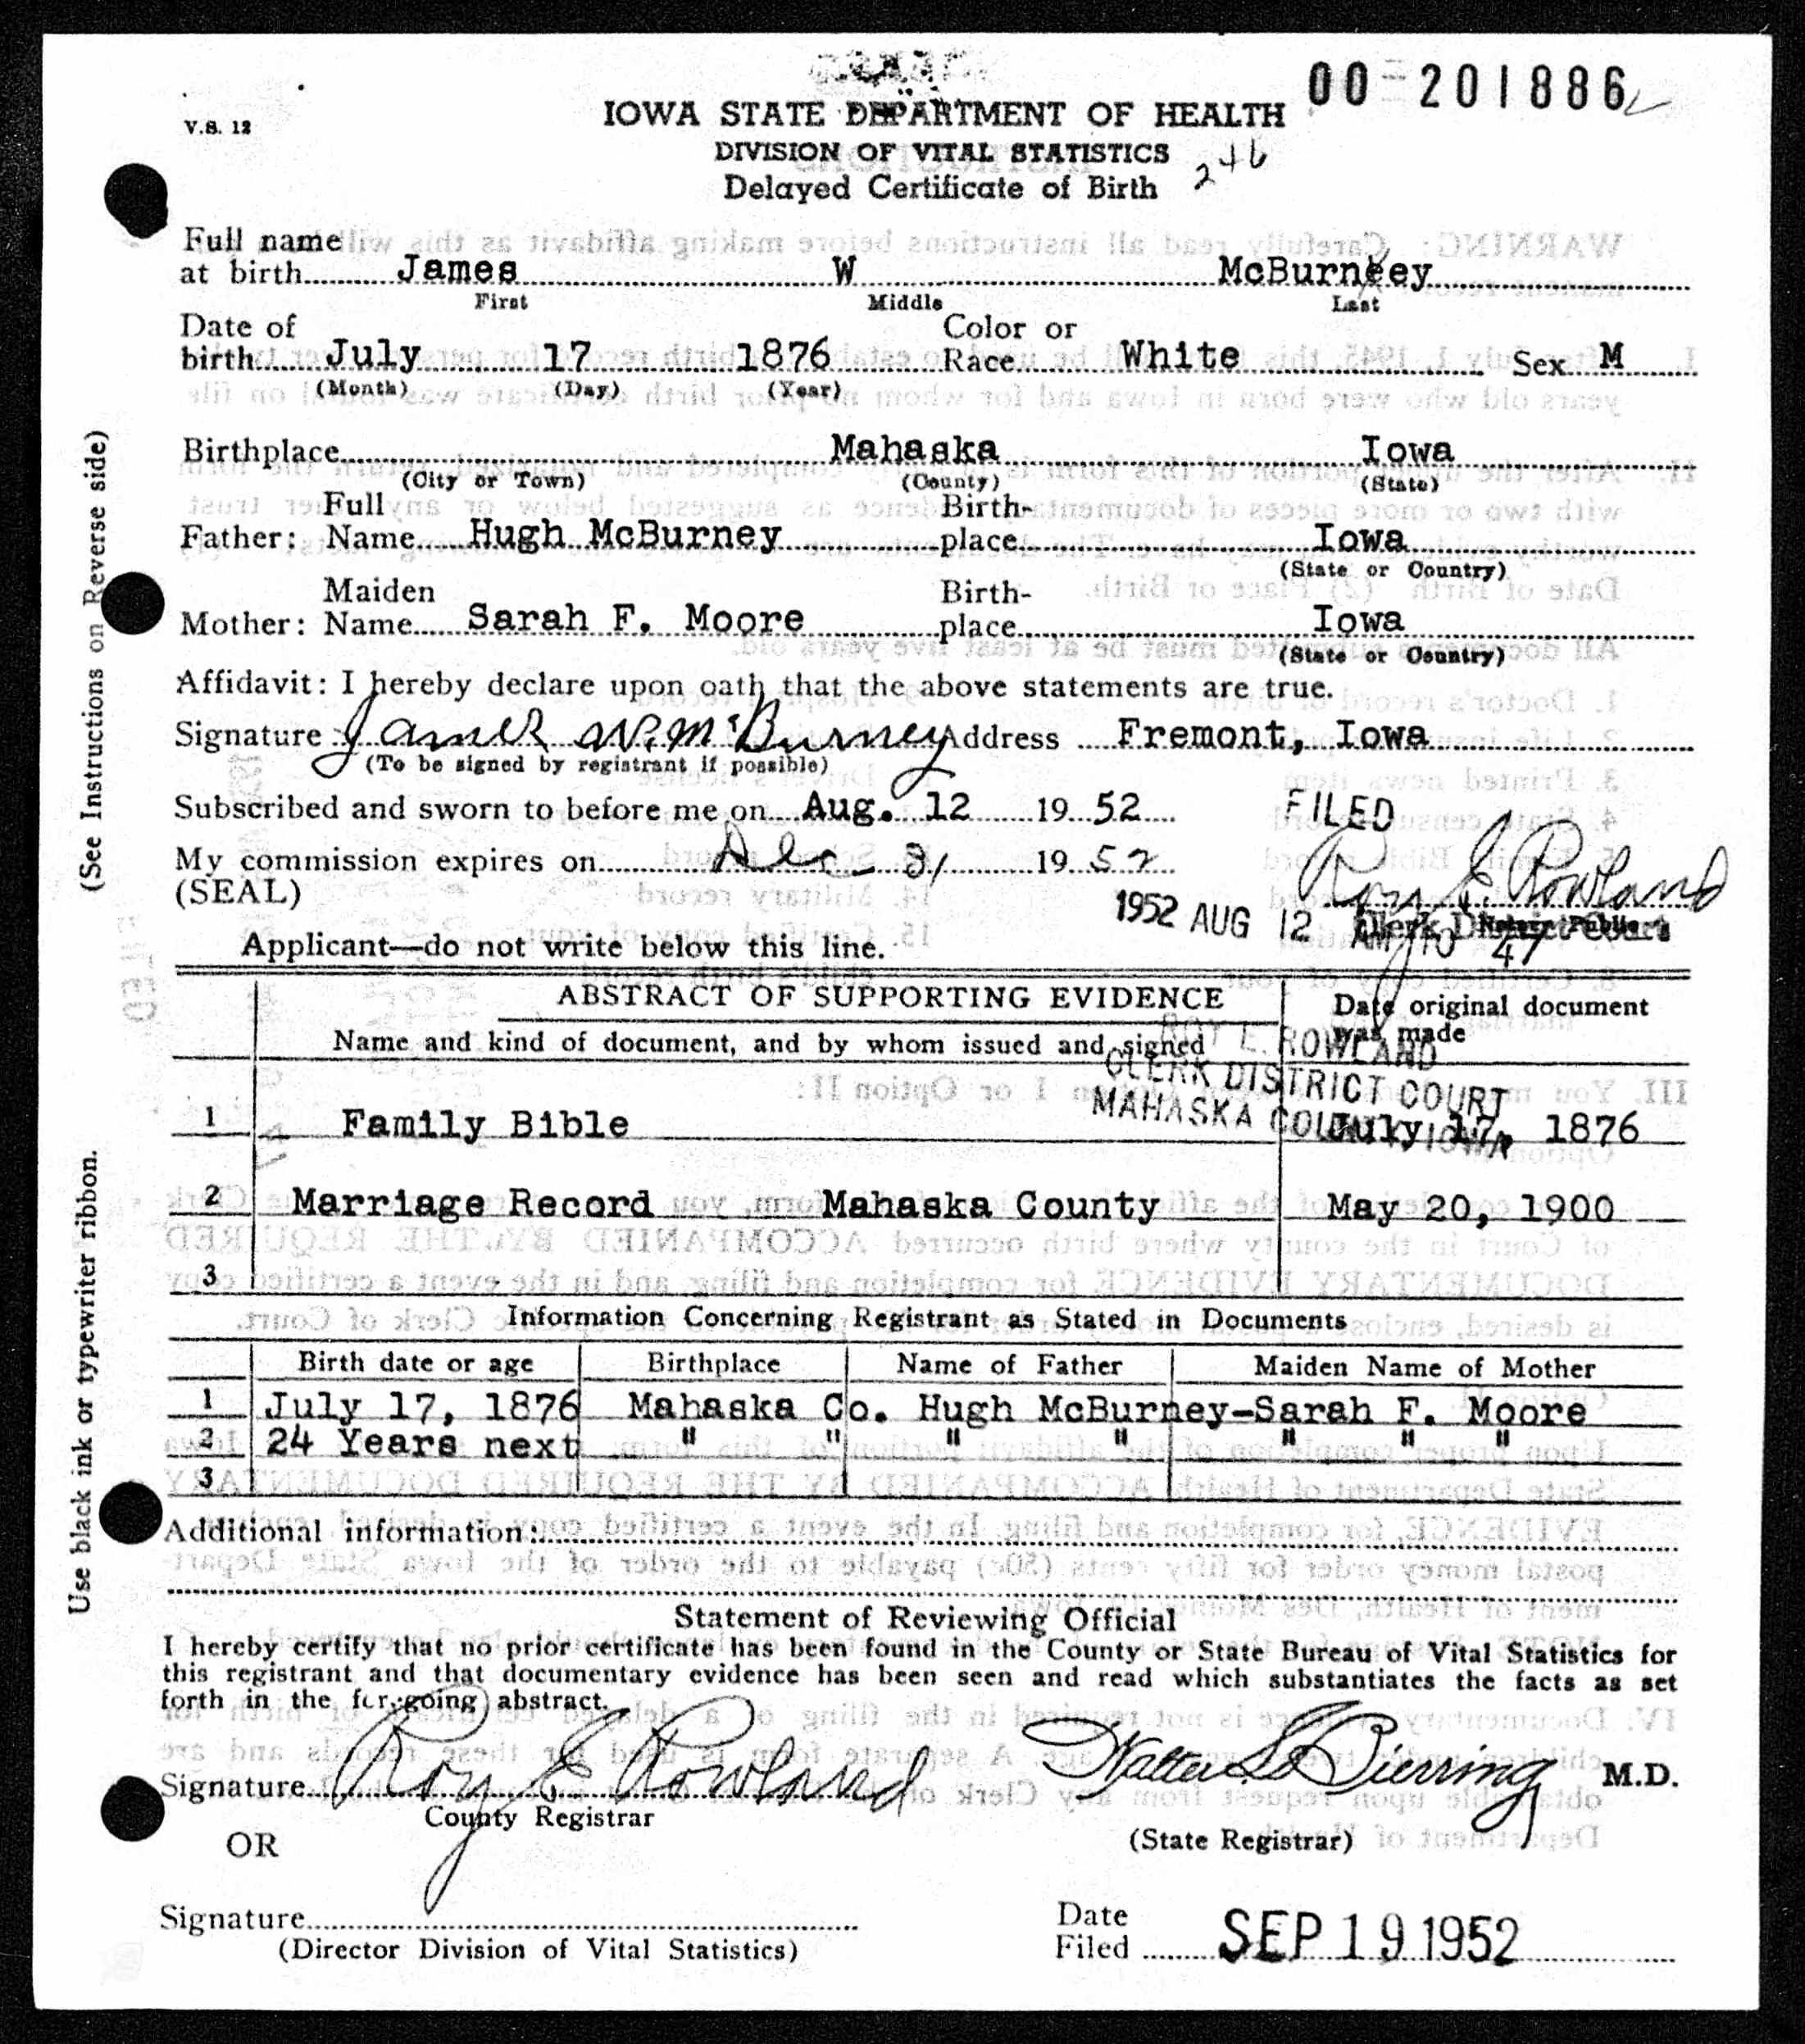 00-201886
V.S. 12
IOWA STATE DEPARTMENT OF HEALTH
DIVISION OF VITAL STATISTICS
246
Delayed Certificate of Birth
Full name
at birth James W McBurneey
First Middle Last
Date of birth July 17 1876 Color or Race White Sex M
(Month) (Day) (Year)
Birthplace Mahaska Iowa
(City or Town) (County) (State)
Father: Full Name Hugh McBurney Birth-place Iowa
(State or Country)
Mother: Maiden Name Sarah F. Moore Birth-place Iowa
(State or Country)
Affidavit: I hereby declare upon oath that the above statements are true.
Signature James W. McBurney Address Fremont, Iowa
(To be signed by registrant if possible)
Subscribed and sworn to before me on Aug. 12 19 52
FILED
My commission expires on Dec 31 19 52
Roy E Rowland
(SEAL)
1952 AUG 12 AM 10 47
Clerk District Court
Notary Public
Applicant—do not write below this line.
ABSTRACT OF SUPPORTING EVIDENCE
Date original document was made
Name and kind of document, and by whom issued and signed
ROY E. ROWLAND
CLERK DISTRICT COURT
MAHASKA COUNTY, IOWA
1 Family Bible July 17, 1876
2 Marriage Record Mahaska County May 20, 1900
3
Information Concerning Registrant as Stated in Documents
Birth date or age Birthplace Name of Father Maiden Name of Mother
1 July 17, 1876 Mahaska Co. Hugh McBurney-Sarah F. Moore
2 24 Years next " " " " " " "
3
Additional information:
Statement of Reviewing Official
I hereby certify that no prior certificate has been found in the County or State Bureau of Vital Statistics for
this registrant and that documentary evidence has been seen and read which substantiates the facts as set
forth in the foregoing abstract.
Signature Roy E Rowland Walter L. Bierring M.D.
County Registrar
(State Registrar)
OR
Signature
(Director Division of Vital Statistics)
Date Filed SEP 19 1952
(See Instructions on Reverse side)
Use black ink or typewriter ribbon.